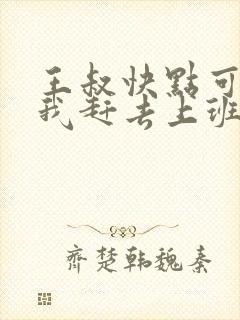 王叔快點可
我赶去上班
齊楚韓魏秦